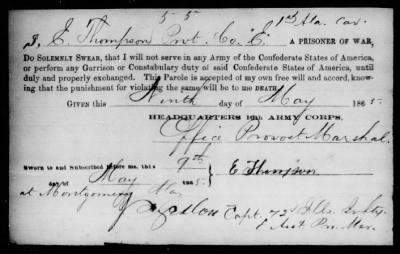 5 5
1st Ala. Cav.
I, E. Thompson Pvt. Co. E. A PRISONER OF WAR,
DO SOLEMNLY SWEAR, that I will not serve in any Army of the Confederate States of America,
or perform any Garrison or Constabulary duty of said Confederate States of America, until
duly and properly exchanged. This Parole is accepted of my own free will and accord, know-
ing that the punishment for violating the same will be to me DEATH.
GIVEN this Ninth day of May 1865.
HEADQUARTERS 16th ARMY CORPS,
Office Provost Marshal.
Sworn to and Subscribed before me, this 9th
day of May 1865. E Thompson
at Montgomery Ala
Capt. 72d Ills. Infty.
& Asst. Pro. Mar.